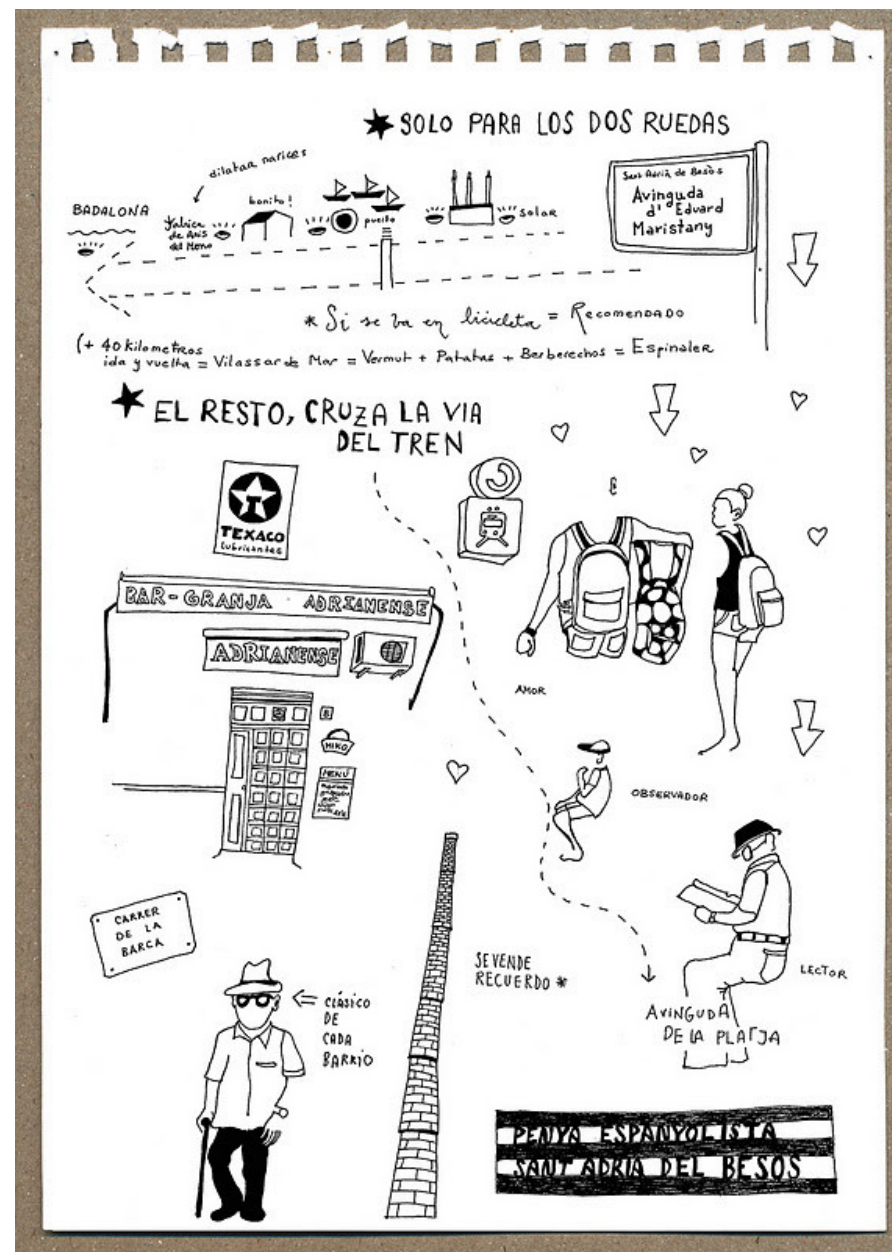 ★ SOLO PARA LOS DOS RUEDAS
dilatar narices
BADALONA
Fabrica
de Anis
del Mono
bonito!
puerto
solar
Sant Adrià de Besòs
Avinguda
d'Eduard
Maristany
* Si se va en bicicleta = Recomendado
(+ 40 kilometros
ida y vuelta = Vilassar de Mar = Vermut + Patatas + Berberechos = Espinaler
★ EL RESTO, CRUZA LA VIA
DEL TREN
TEXACO
Lubricantes
BAR-GRANJA ADRIANENSE
ADRIANENSE
MIKO
MENU
AMOR
OBSERVADOR
CARRER
DE LA
BARCA
CLÁSICO
DE
CADA
BARRIO
SE VENDE
RECUERDO *
LECTOR
AVINGUDA
DE LA PLATJA
PENYA ESPANYOLISTA
SANT ADRIA DEL BESOS